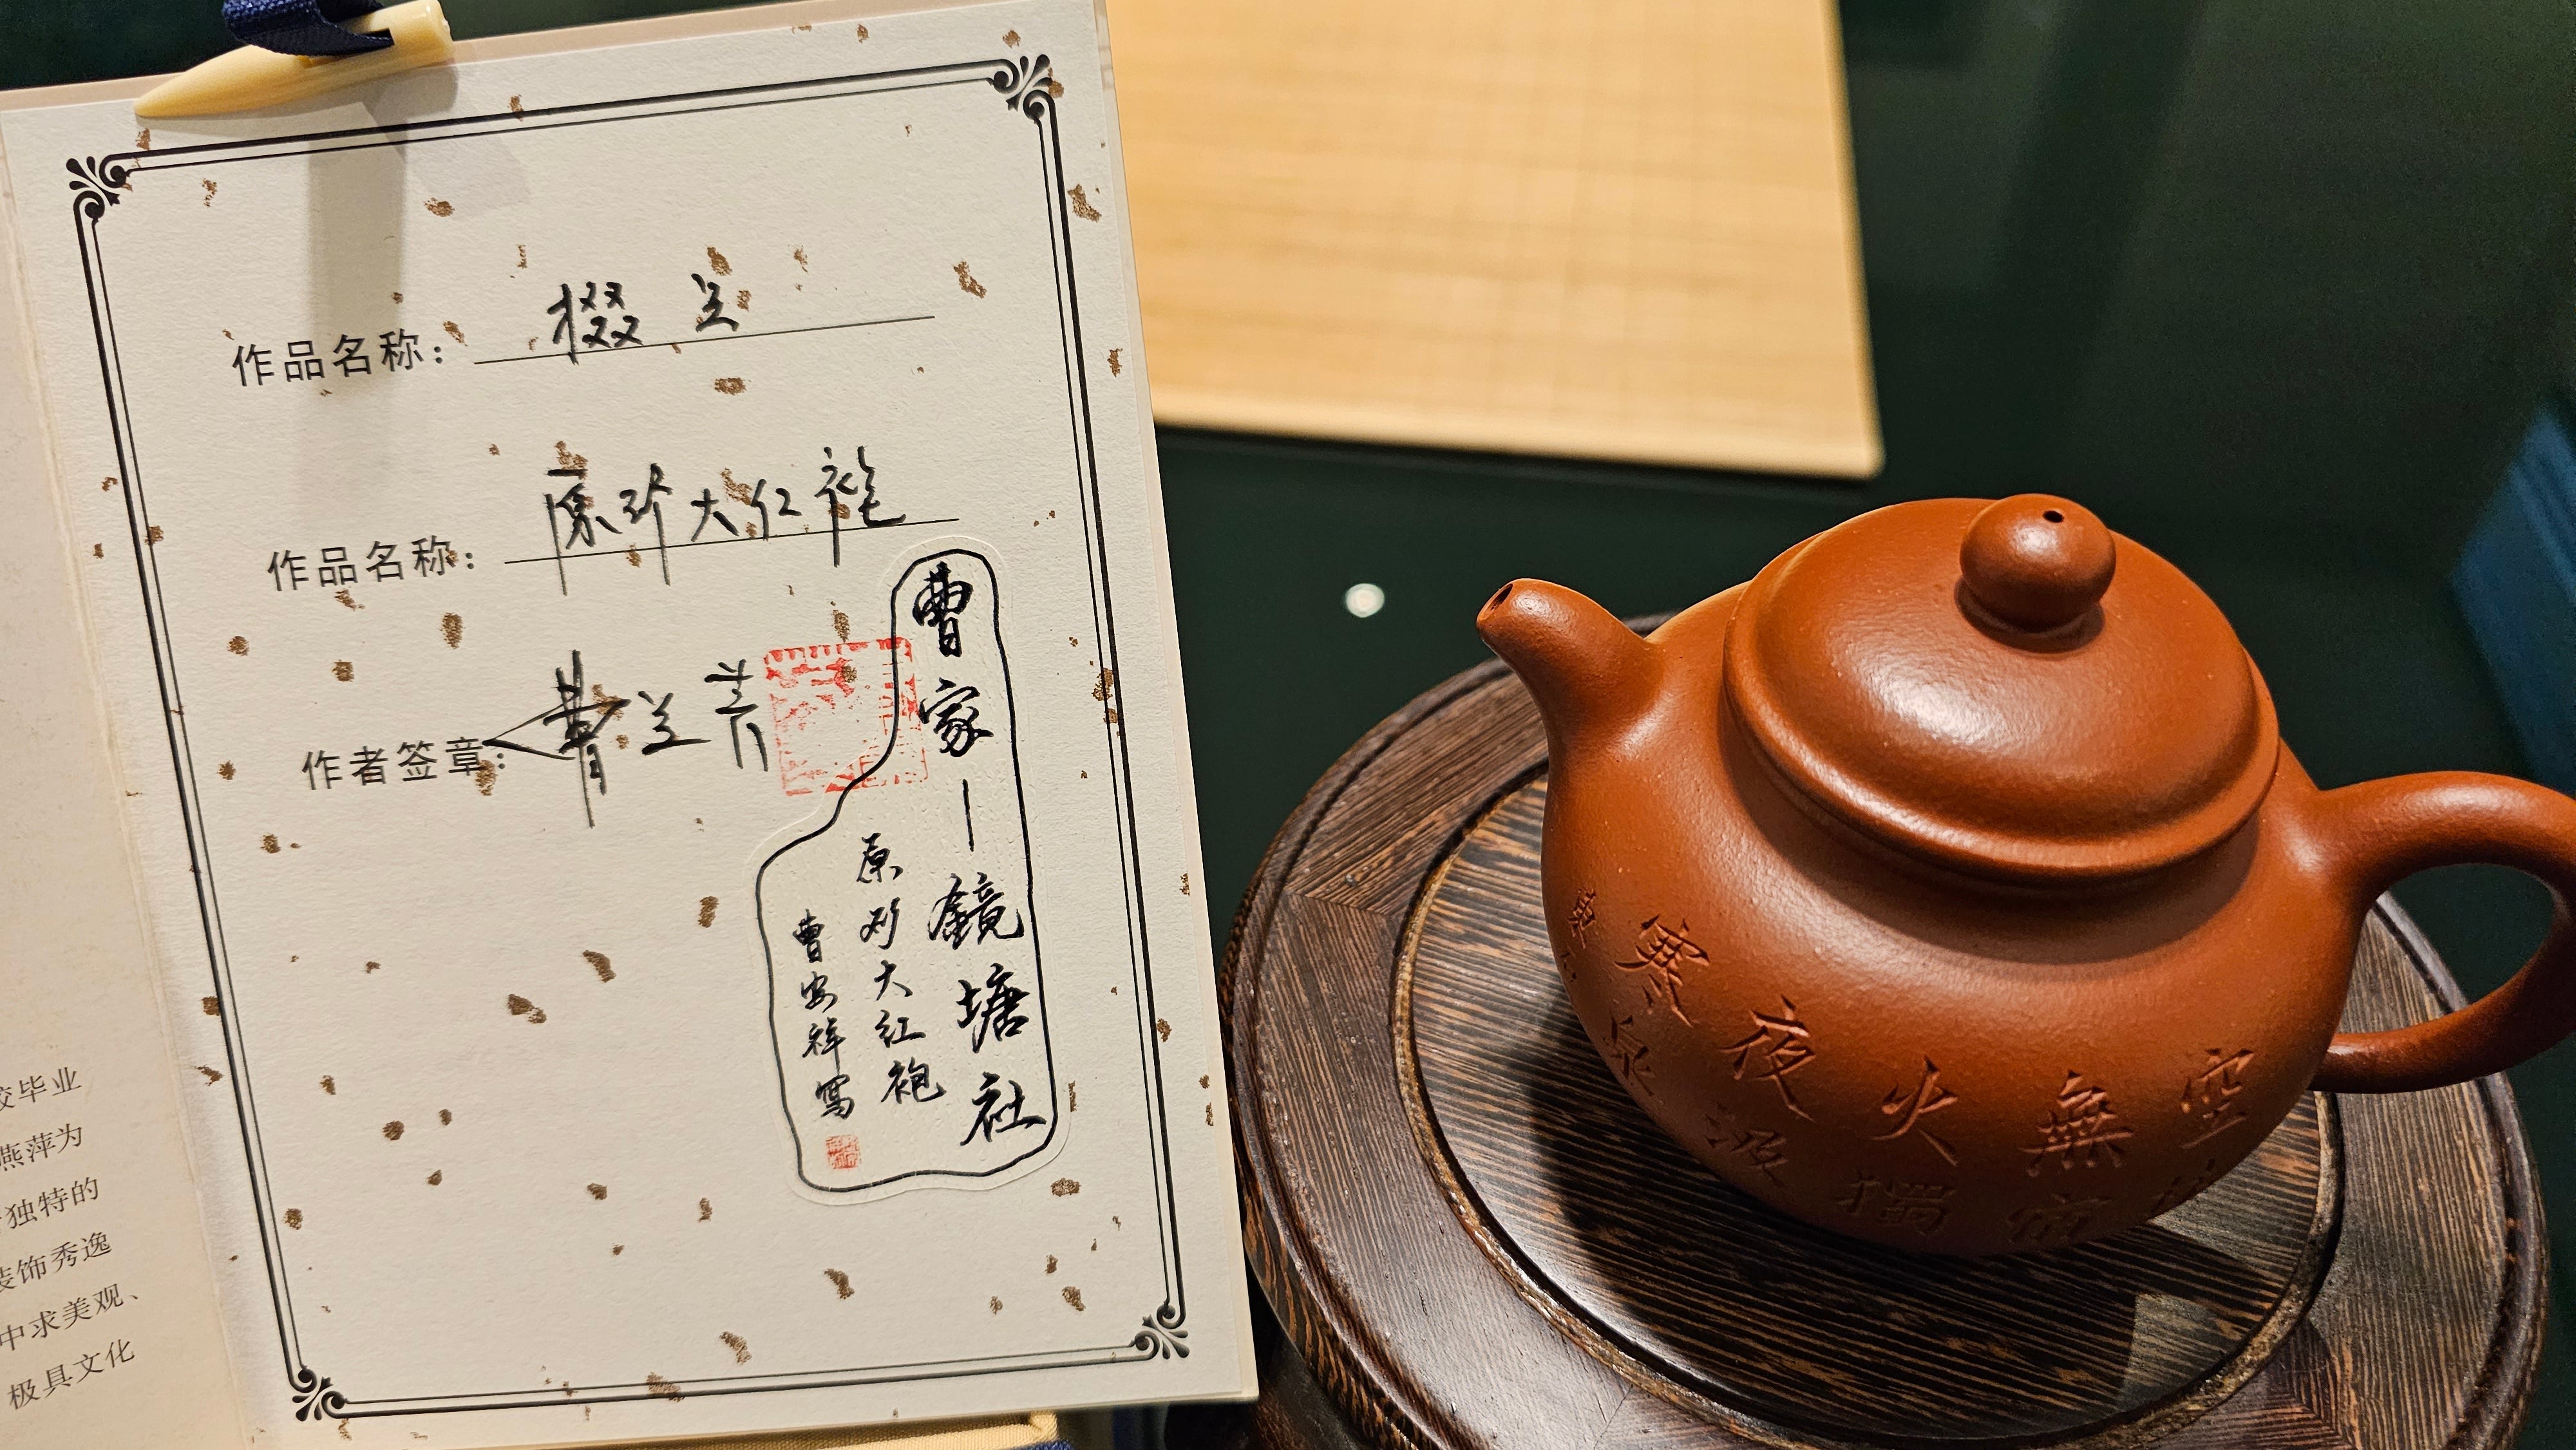 作品名称：掇只
作品名称：原矿大红袍
作者签章：
曹家一鏡塘社
原矿大红袍
曹安祥寫
校毕业
燕萍为
独特的
装饰秀逸
中求美观、
极具文化
空無火夜寒
泉汲